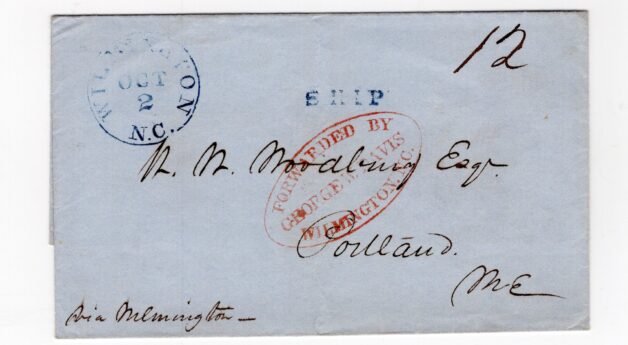 WILMINGTON
OCT
2
N.C.
12
SHIP
FORWARDED BY
GEORGE DAVIS
WILMINGTON, N.C.
Woodbury Esqr
Portland.
ME
via Wilmington —